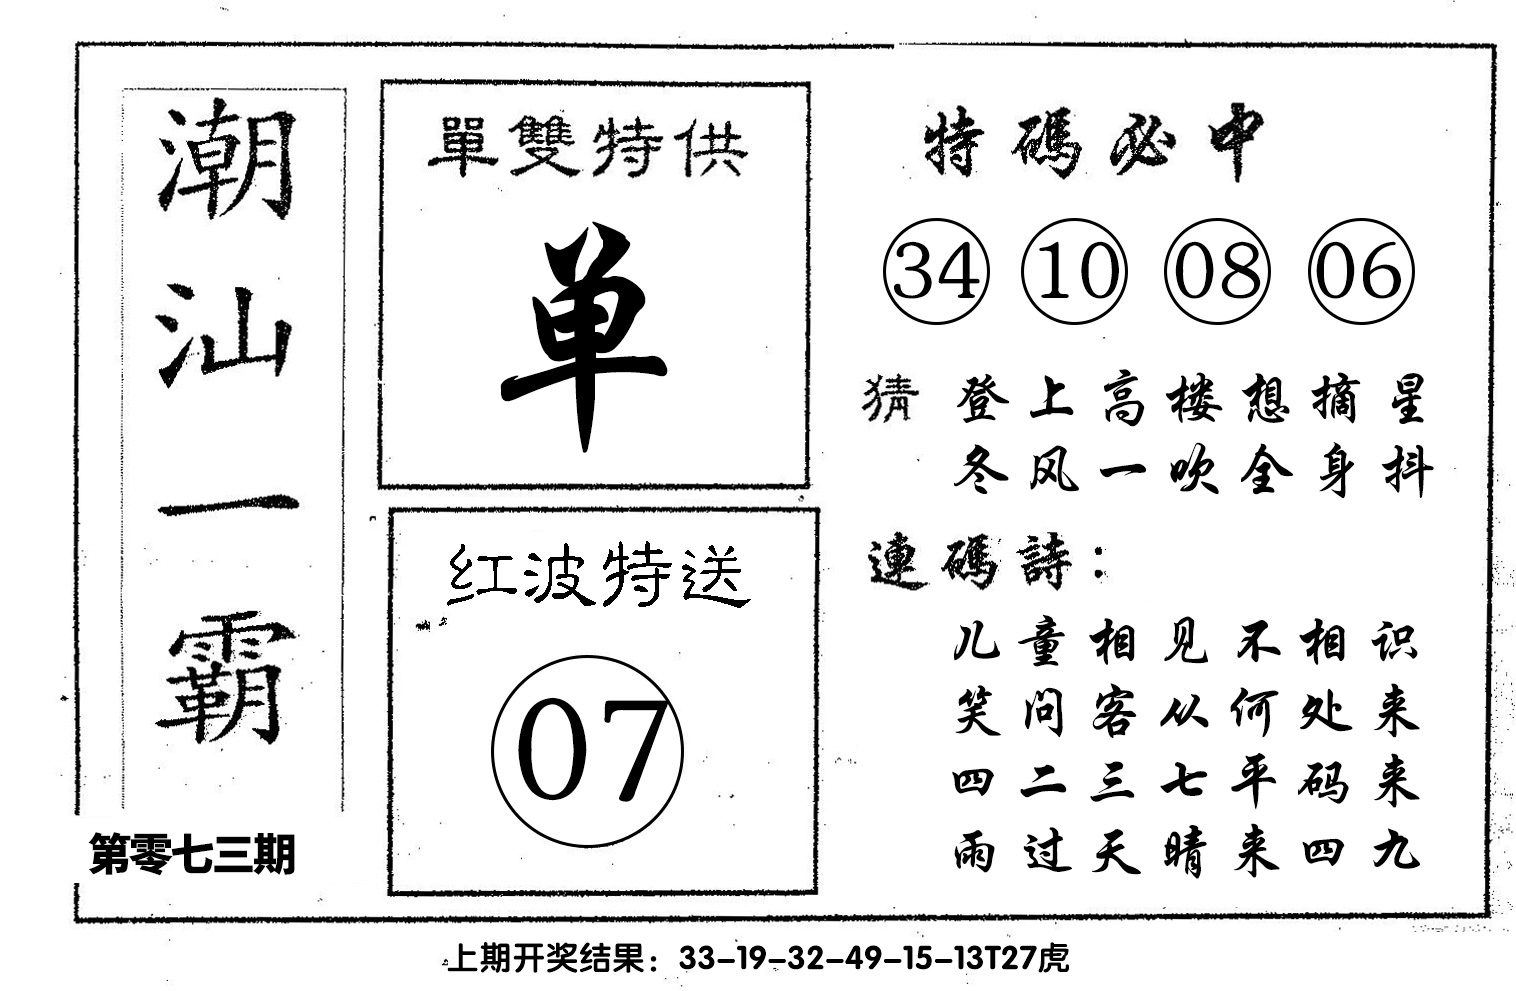 潮汕一霸
第零七三期
單雙特供
单
红波特送
07
特碼必中
34 10 08 06
猜 登上高楼想摘星
冬风一吹全身抖
連碼詩：
儿童相见不相识
笑问客从何处来
四二三七平码来
雨过天晴来四九
上期开奖结果：33-19-32-49-15-13T27虎